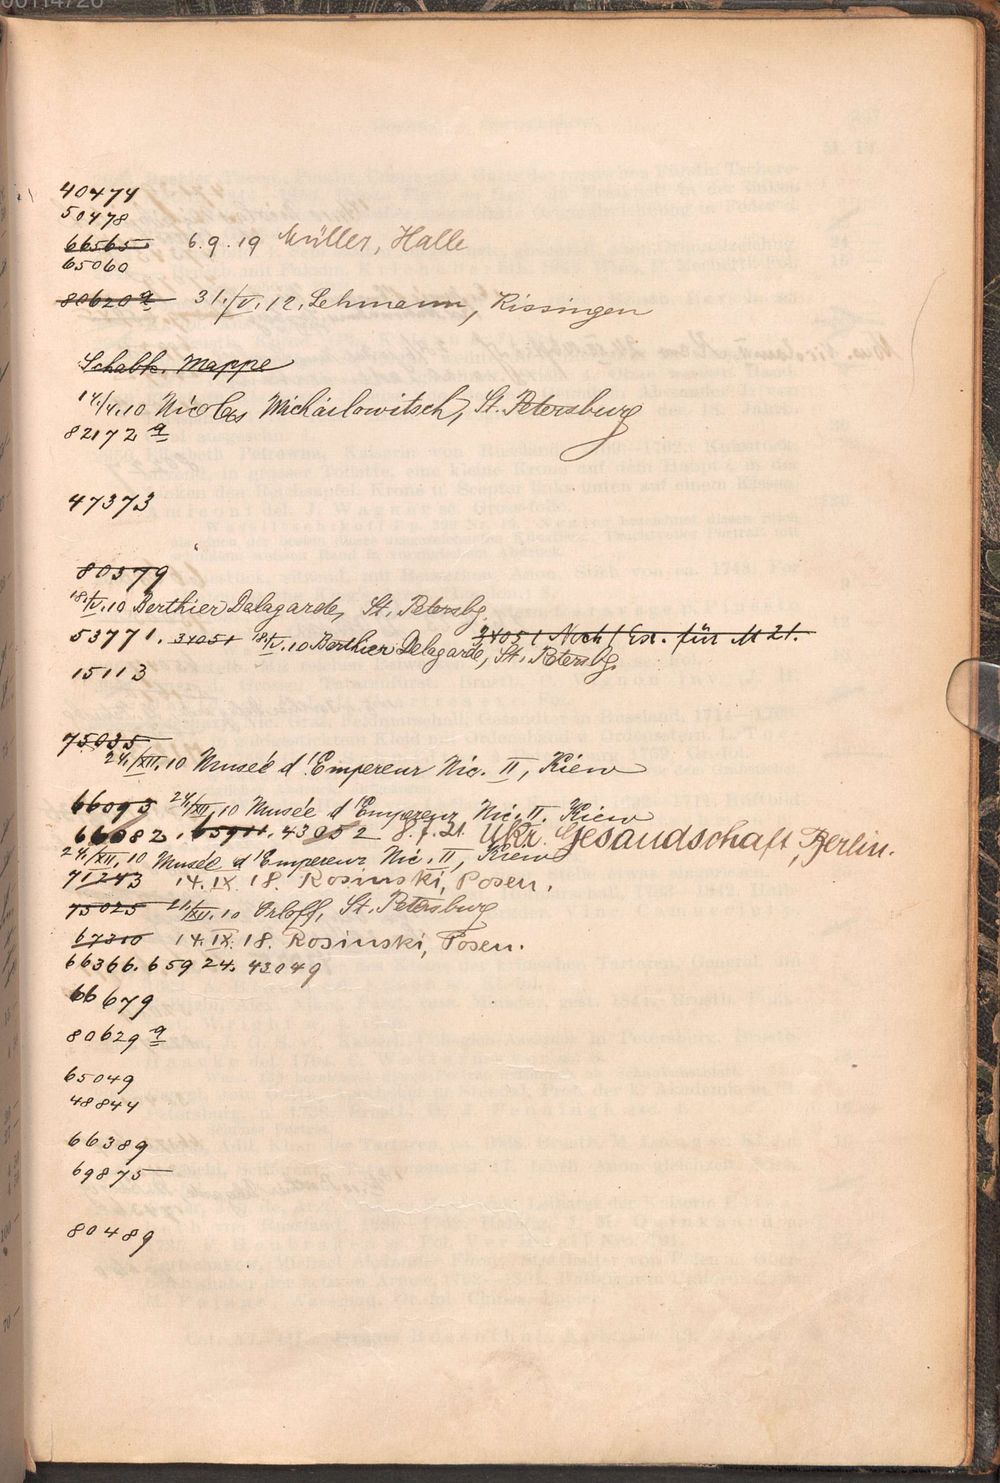 40474
50478
66565 6.9.19 Müller, Halle
65060
80620 a 31./V.12. Lehmann, Kissingen
Schabk. Mappe
14./4.10 Nicolas Michailowitsch, St. Petersburg
82172 a
47373
80379
18./V.10 Berthier Delagarde, St. Petersbg.
53771. 34051 18./V.10 Berthier Delagarde, St. Petersbg. 34051 Noch 1 Ex. für M 21.
15113
75035
24./XII.10 Museé d'Empereur Nic. II, Kiew
66093 24./XII.10 Museé d'Empereur Nic. II. Kiew
66082. 65911. 43052 8.7.21. Ukr. Gesandschaft, Berlin.
24./XII.10 Museé d'Empereur Nic. II, Kiew
71243 14.IX.18. Rosinski, Posen.
75025 21./XII.10 Orloff, St. Petersburg
67310 14.IX.18. Rosinski, Posen.
66366. 65924. 43049
66679
80629 a
65049
48844
66389
69875
80489